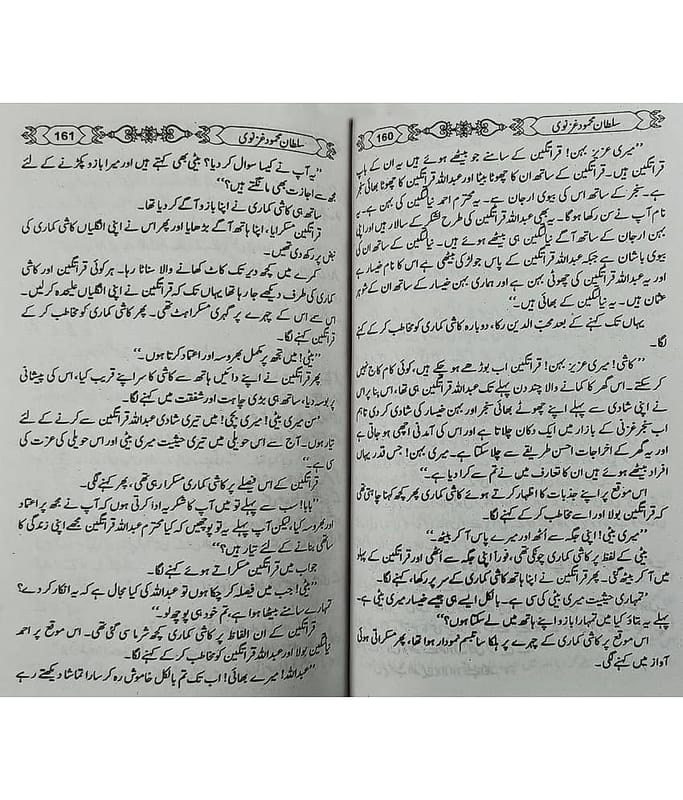 سلطان محمود غزنوی
160
’’میری عزیز بہن! قراتگین کے سامنے جو بیٹھے ہوئے ہیں یہ ان کے باپ
قراتگین ہیں۔ قراتگین کے ساتھ ان کا چھوٹا بیٹا اور عبداللہ قراتگین کا چھوٹا بھائی سنجر
ہے۔ سنجر کے ساتھ اس کی بیوی ارجان ہے۔ یہ محترم احمد نیالتگین کی بہن ہے۔ یہ
نام آپ نے سن رکھا ہوگا۔ یہ بھی عبداللہ قراتگین کی طرح لشکر کے سالار ہیں اور اپنی
بہن ارجان کے ساتھ آگے نیالتگین ہی بیٹھے ہوئے ہیں۔ نیالتگین کے ساتھ ان کی
بیوی باشان ہے جبکہ عبداللہ قراتگین کے پاس جو لڑکی بیٹھی ہے اس کا نام خیسار ہے
اور یہ عبداللہ قراتگین کی چھوٹی بہن ہے اور ہماری بہن خیسار کے ساتھ ان کے شوہر
عثمان ہیں۔ یہ نیالتگین کے بھائی ہیں۔‘‘
یہاں تک کہنے کے بعد محب الدین رکا، دوبارہ کاشی کماری کو مخاطب کر کے کہنے
لگا۔
’’کاشی! میری عزیز بہن! قراتگین اب بوڑھے ہو چکے ہیں، کوئی کام کاج نہیں
کر سکتے۔ اس گھر کا کمانے والا چند دن پہلے تک عبداللہ قراتگین ہی تھا، اس بنا پر اس
نے اپنی شادی سے پہلے اپنے چھوٹے بھائی سنجر اور بہن خیسار کی شادی کر دی تاہم
اب سنجر غزنی کے بازار میں ایک دکان چلاتا ہے اور اس کی آمدنی اچھی ہو جاتی ہے
اور یہ گھر کے اخراجات احسن طریقے سے چلا سکتا ہے۔ میری بہن! جس قدر یہاں
افراد بیٹھے ہوئے ہیں ان کا تعارف میں نے تم سے کرا دیا ہے۔‘‘
اس موقع پر اپنے جذبات کا اظہار کرتے ہوئے کاشی کماری پھر کچھ کہنا چاہتی تھی
کہ قراتگین بولا اور اسے مخاطب کر کے کہنے لگا۔
’’میری بیٹی! اپنی جگہ سے اٹھ اور میرے پاس آ کر بیٹھ۔‘‘
بیٹی کے لفظ پر کاشی کماری چونکی تھی، فوراً اپنی جگہ سے اٹھی اور قراتگین کے پہلو
میں آ کر بیٹھ گئی۔ پھر قراتگین نے اپنا ہاتھ کاشی کماری کے سر پر رکھا، کہنے لگا۔
’’تمہاری حیثیت میری بیٹی کی سی ہے۔ بالکل ایسے ہی جیسے خیسار میری بیٹی ہے۔
پہلے یہ بتاؤ کیا میں تمہارا بازو اپنے ہاتھ میں لے سکتا ہوں؟‘‘
اس موقع پر کاشی کماری کے چہرے پر ہلکا سا تبسم نمودار ہوا، پھر مسکراتی ہوئی
آواز میں کہنے لگی۔
سلطان محمود غزنوی
161
’’یہ آپ نے کیسا سوال کر دیا؟ بیٹی بھی کہتے ہیں اور میرا بازو پکڑنے کے لئے
مجھ سے اجازت بھی مانگتے ہیں؟‘‘
ساتھ ہی کاشی کماری نے اپنا بازو آگے کر دیا تھا۔
قراتگین مسکرایا، اپنا ہاتھ آگے بڑھایا اور پھر اس نے اپنی انگلیاں کاشی کماری کی
نبض پر رکھ دی تھیں۔
کمرے میں کچھ دیر تک کاٹ کھانے والا سناٹا رہا۔ ہر کوئی قراتگین اور کاشی
کماری کی طرف دیکھے جا رہا تھا یہاں تک کہ قراتگین نے اپنی انگلیاں علیحدہ کر لیں۔
اس سے اس کے چہرے پر گہری مسکراہٹ تھی۔ پھر کاشی کماری کو مخاطب کر کے
قراتگین کہنے لگا۔
’’بیٹی! میں تجھ پر مکمل بھروسہ اور اعتماد کرتا ہوں۔‘‘
پھر قراتگین نے اپنے دائیں ہاتھ سے کاشی کا سر اپنے قریب کیا، اس کی پیشانی
پر بوسہ دیا، ساتھ ہی بڑی چاہت اور شفقت میں کہنے لگا۔
’’سن میری بیٹی! میری بچی! میں تیری شادی عبداللہ قراتگین سے کرنے کے لئے
تیار ہوں۔ آج سے اس حویلی میں تیری حیثیت میری بیٹی اور اس حویلی کی عزت کی
سی ہے۔‘‘
قراتگین کے اس فیصلے پر کاشی کماری مسکرا رہی تھی، پھر کہنے لگی۔
’’بابا! سب سے پہلے تو میں آپ کا شکریہ ادا کرتی ہوں کہ آپ نے مجھ پر اعتماد
اور بھروسہ کیا، لیکن آپ پہلے یہ تو پوچھیں کہ کیا محترم عبداللہ قراتگین مجھے اپنی زندگی کا
ساتھی بنانے کے لئے تیار ہیں؟‘‘
جواب میں قراتگین مسکراتے ہوئے کہنے لگا۔
’’بیٹی! جب میں فیصلہ کر چکا ہوں تو عبداللہ کی کیا مجال ہے کہ یہ انکار کر دے؟
تمہارے سامنے بیٹھا ہوا ہے، تم خود ہی پوچھ لو۔‘‘
قراتگین کے ان الفاظ پر کاشی کماری کچھ شرما سی گئی تھی۔ اس موقع پر احمد
نیالتگین بولا اور عبداللہ قراتگین کو مخاطب کر کے کہنے لگا۔
’’عبداللہ! میرے بھائی! اب تک تم بالکل خاموش رہ کر سارا تماشا دیکھتے رہے